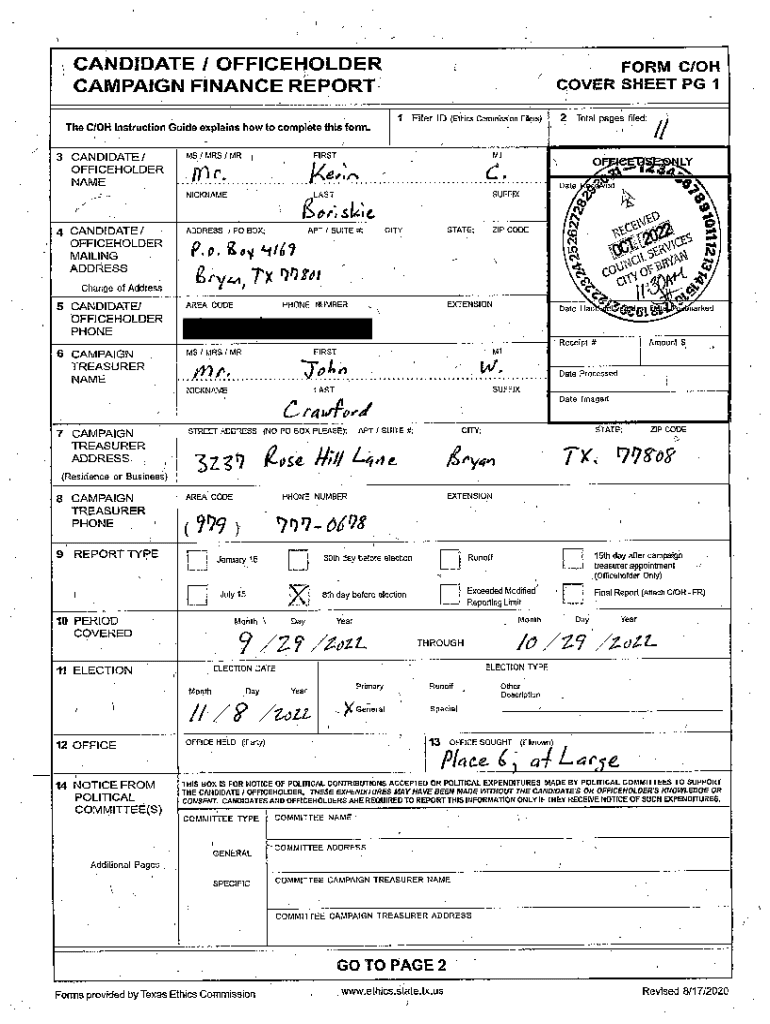 CANDIDATE / OFFICEHOLDER
CAMPAIGN FINANCE REPORT
FORM C/OH
COVER SHEET PG 1
The C/OH Instruction Guide explains how to complete this form.
1 Filer ID (Ethics Commission Filers)
2 Total pages filed:
11
3 CANDIDATE / OFFICEHOLDER NAME
MS / MRS / MR FIRST MI
Mr. Kevin C.
NICKNAME LAST SUFFIX
Boriskie
OFFICE USE ONLY
Date Received
RECEIVED
OCT 2022
COUNCIL SERVICES
CITY OF BRYAN
11:30AM
4 CANDIDATE / OFFICEHOLDER MAILING ADDRESS
Change of Address
ADDRESS / PO BOX; APT / SUITE #; CITY STATE; ZIP CODE
P.O. Box 4169
Bryan, TX 77801
5 CANDIDATE/ OFFICEHOLDER PHONE
AREA CODE PHONE NUMBER EXTENSION
Receipt # Amount $
Date Processed
Date Imaged
6 CAMPAIGN TREASURER NAME
MS / MRS / MR FIRST MI
Mr. John W.
NICKNAME LAST SUFFIX
Crawford
7 CAMPAIGN TREASURER ADDRESS
(Residence or Business)
STREET ADDRESS (NO PO BOX PLEASE); APT / SUITE #; CITY; STATE; ZIP CODE
3237 Rose Hill Lane Bryan TX. 77808
8 CAMPAIGN TREASURER PHONE
AREA CODE PHONE NUMBER EXTENSION
(979) 777-0678
9 REPORT TYPE
January 15
30th day before election
Runoff
15th day after campaign treasurer appointment (Officeholder Only)
July 15
X 8th day before election
Exceeded Modified Reporting Limit
Final Report (Attach C/OH - FR)
10 PERIOD COVERED
Month Day Year
9 / 29 / 2022
THROUGH
Month Day Year
10 / 29 / 2022
11 ELECTION
ELECTION DATE
Month Day Year
11 / 8 / 2022
ELECTION TYPE
Primary Runoff Other Description
X General Special
12 OFFICE
OFFICE HELD (if any)
13 OFFICE SOUGHT (if known)
Place 6; at Large
14 NOTICE FROM POLITICAL COMMITTEE(S)
THIS BOX IS FOR NOTICE OF POLITICAL CONTRIBUTIONS ACCEPTED OR POLITICAL EXPENDITURES MADE BY POLITICAL COMMITTEES TO SUPPORT
THE CANDIDATE / OFFICEHOLDER. THESE EXPENDITURES MAY HAVE BEEN MADE WITHOUT THE CANDIDATE'S OR OFFICEHOLDER'S KNOWLEDGE OR
CONSENT. CANDIDATES AND OFFICEHOLDERS ARE REQUIRED TO REPORT THIS INFORMATION ONLY IF THEY RECEIVE NOTICE OF SUCH EXPENDITURES.
COMMITTEE TYPE
GENERAL
SPECIFIC
COMMITTEE NAME
COMMITTEE ADDRESS
COMMITTEE CAMPAIGN TREASURER NAME
COMMITTEE CAMPAIGN TREASURER ADDRESS
Additional Pages
GO TO PAGE 2
Forms provided by Texas Ethics Commission
www.ethics.state.tx.us
Revised 8/17/2020